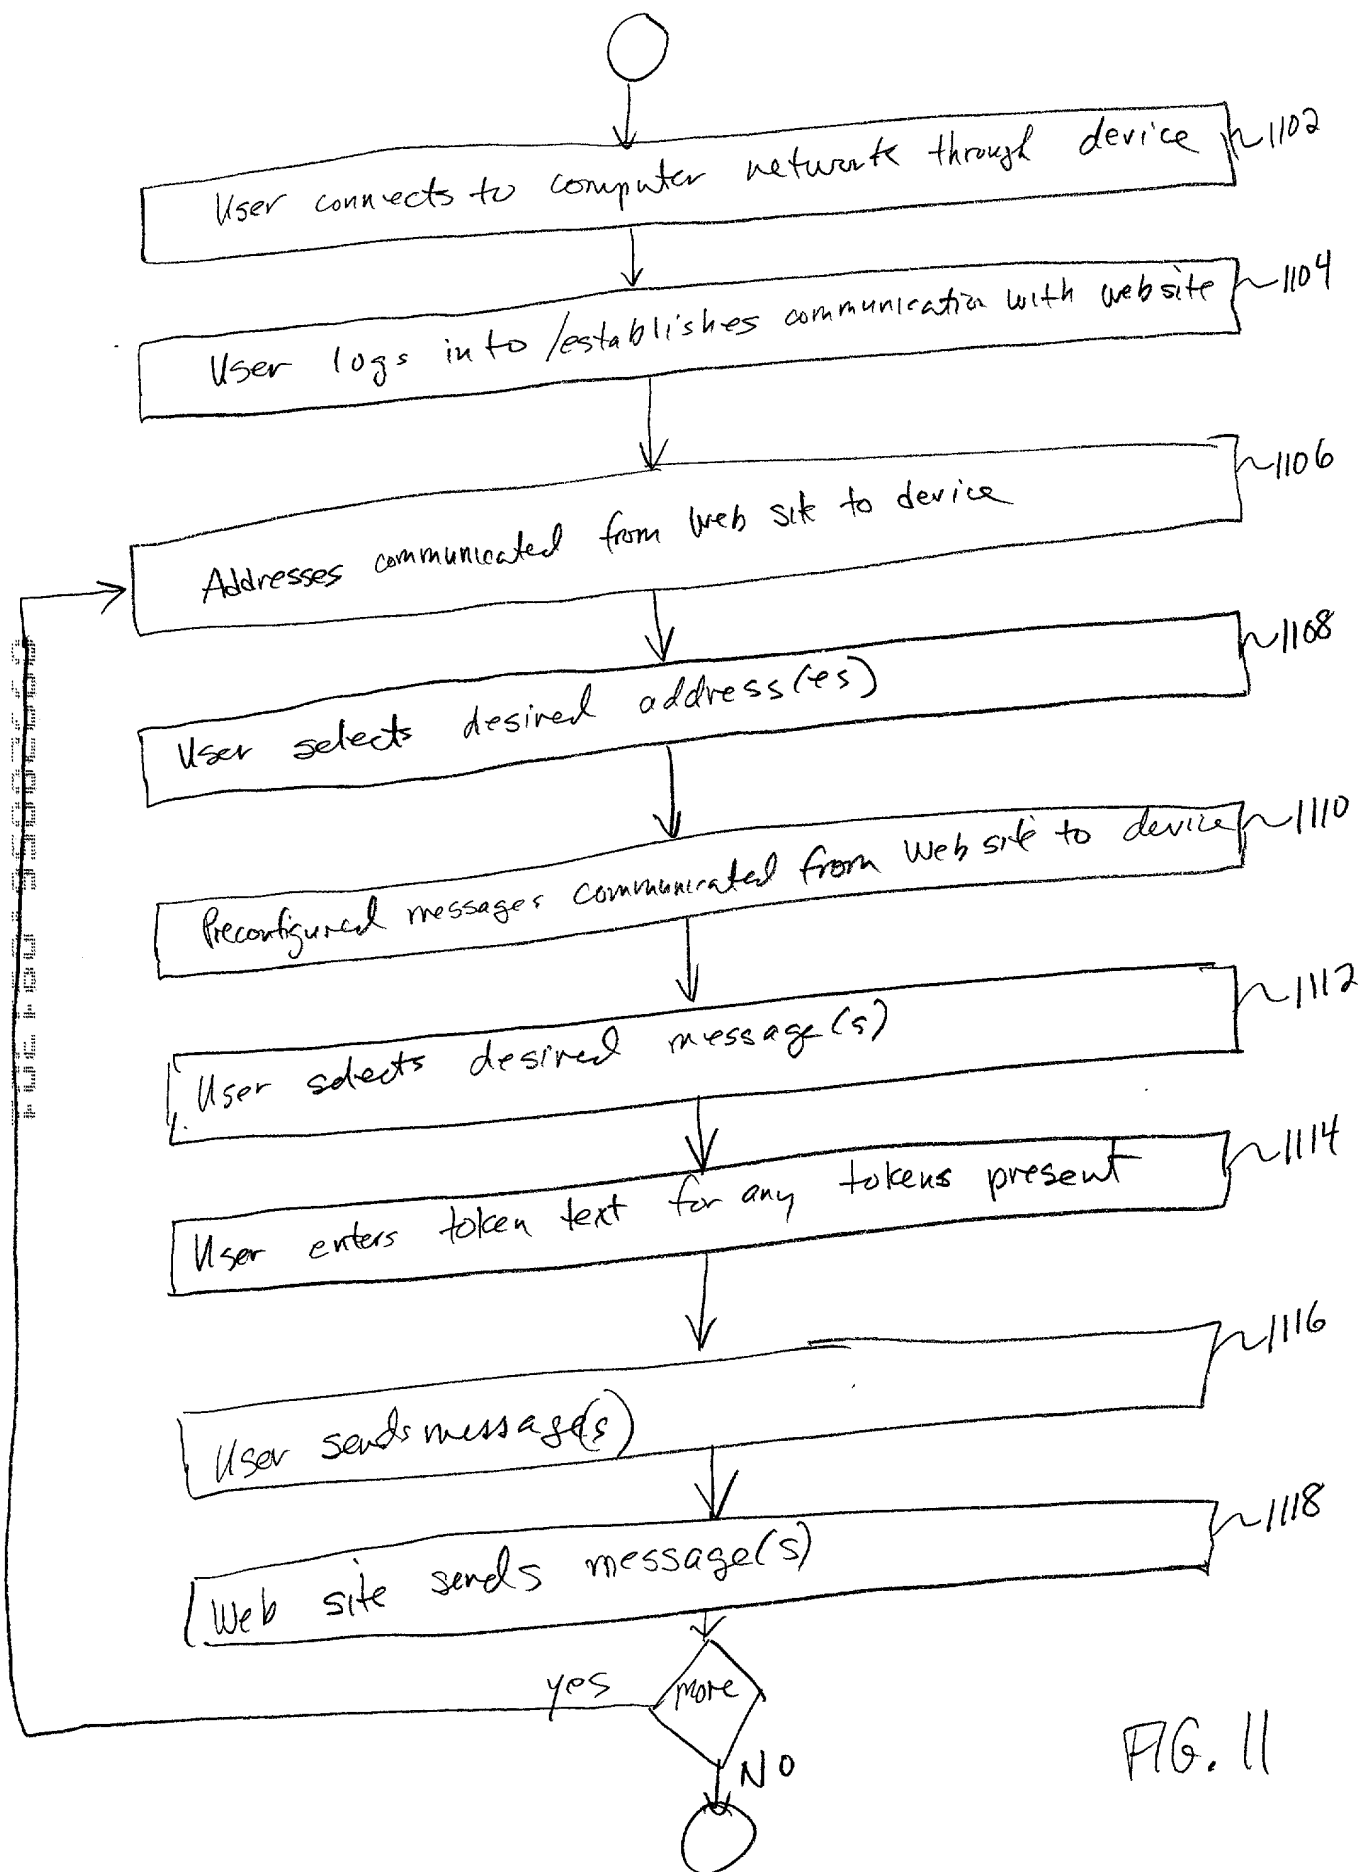 User connects to computer network through device 1102
User logs into/establishes communication with website 1104
Addresses communicated from Web site to device 1106
User selects desired address(es) 1108
Preconfigured messages communicated from Web site to device 1110
User selects desired message(s) 1112
User enters token text for any tokens present 1114
User sends message(s) 1116
Web site sends message(s) 1118
yes more
NO
FIG. 11